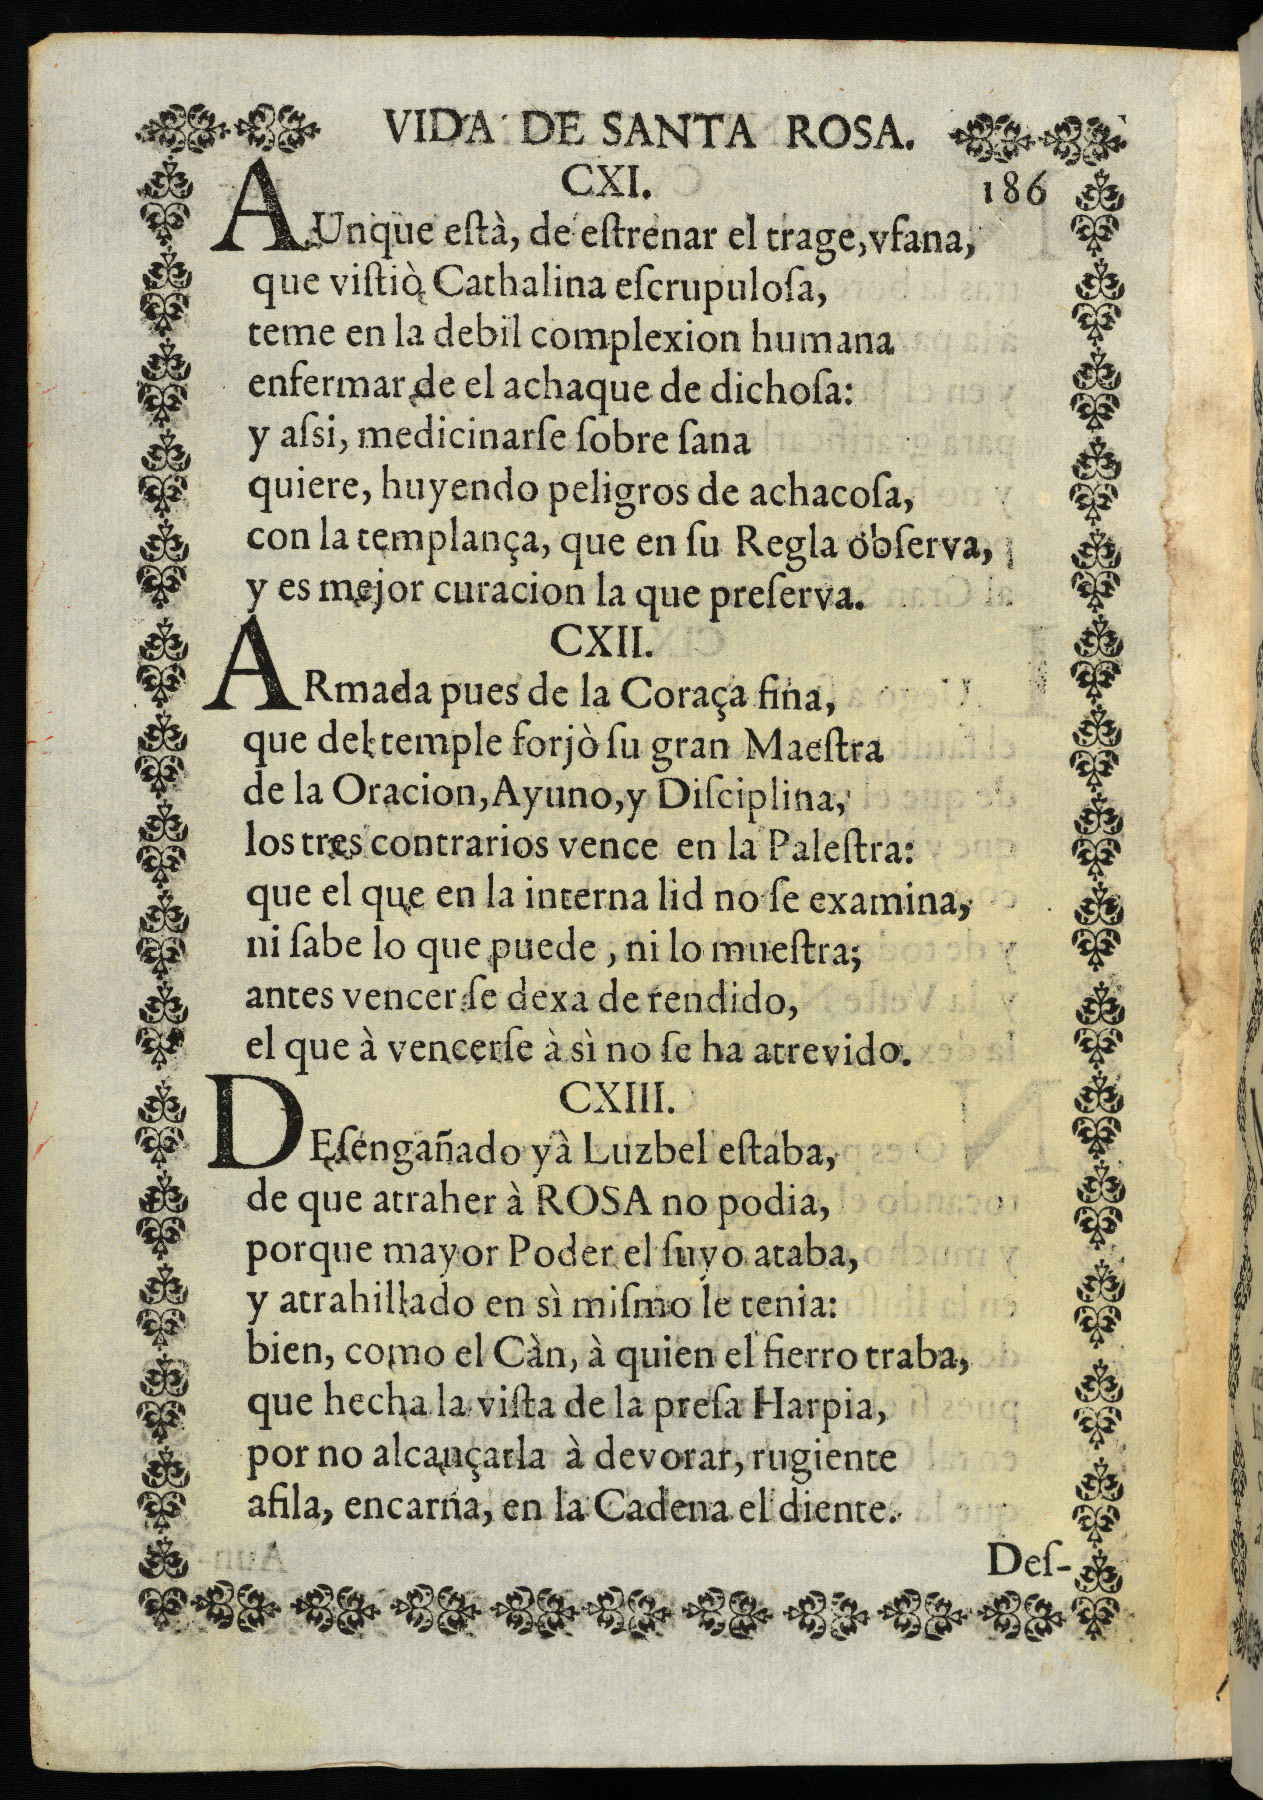 VIDA DE SANTA ROSA.
CXI.
186
AUnque eſtà, de eſtrenar el trage, vfana,
que viſtiò Cathalina eſcrupuloſa,
teme en la debil complexion humana
enfermar de el achaque de dichoſa:
y aſsi, medicinarſe ſobre ſana
quiere, huyendo peligros de achacoſa,
con la templança, que en ſu Regla obſerva,
y es mejor curacion la que preſerva.
CXII.
ARmada pues de la Coraça fina,
que del temple forjò ſu gran Maeſtra
de la Oracion, Ayuno, y Diſciplina,
los tres contrarios vence en la Paleſtra:
que el que en la interna lid no ſe examina,
ni ſabe lo que puede, ni lo mueſtra;
antes vencer ſe dexa de rendido,
el que à vencerſe à sì no ſe ha atrevido.
CXIII.
DEſengañado yà Luzbel eſtaba,
de que atraher à ROSA no podia,
porque mayor Poder el ſuyo ataba,
y atrahillado en sì miſmo le tenia:
bien, como el Càn, à quien el fierro traba,
que hecha la viſta de la preſa Harpia,
por no alcançarla à devorar, rugiente
afila, encarna, en la Cadena el diente.
Deſ-